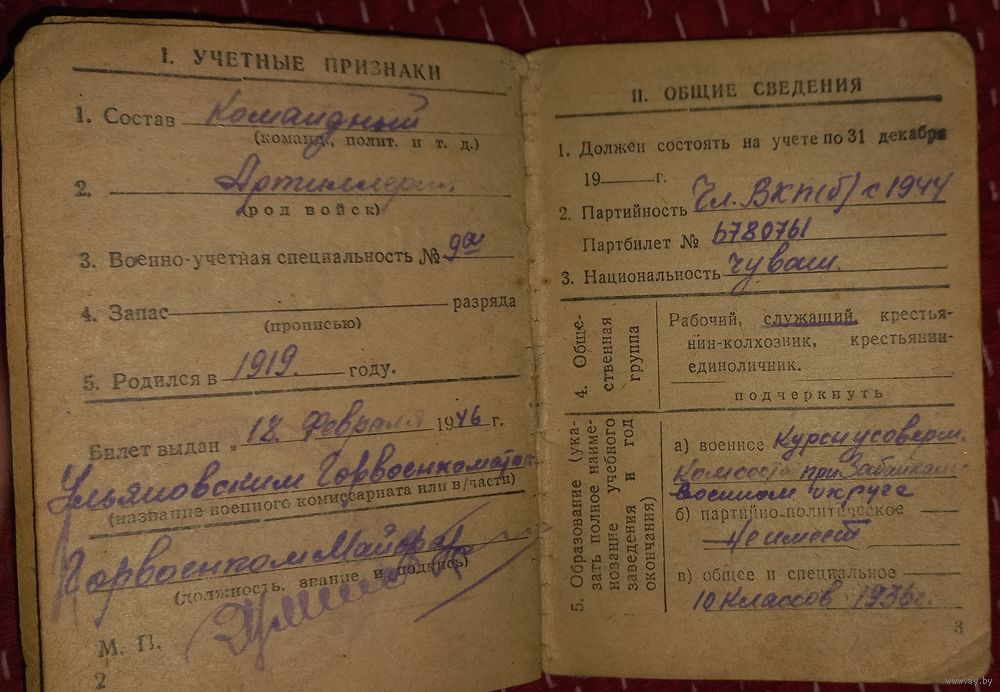 I. УЧЕТНЫЕ ПРИЗНАКИ
1. Состав Командный
(команд., полит. и т. д.)
2. Артиллерии.
(род войск)
3. Военно-учетная специальность №
4. Запас разряда
(прописью)
5. Родился в 1919. году.
Билет выдан „ 18. Февраля 1946 г.
Ульяновским Горвоенкоматом
(название военного комиссариата или в/части)
Горвоенком Майор
(должность, звание и подпись)
М. П.
2
II. ОБЩИЕ СВЕДЕНИЯ
1. Должен состоять на учете по 31 декабря
19 г.
2. Партийность Чл. ВКП(б) с 1944
Партбилет № 6780761
3. Национальность чуваш.
4. Обще-
ственная
группа
Рабочий, служащий, крестья-
нин-колхозник, крестьянин-
единоличник.
подчеркнуть
5. Образование (ука-
зать полное наиме-
нование учебного
заведения и год
окончания)
а) военное Курсы усоверш.
Комсостава при Забайкал.
военном округе
б) партийно-политическое
Не имеет
в) общее и специальное
10 классов 1936г.
3
www.ay.by